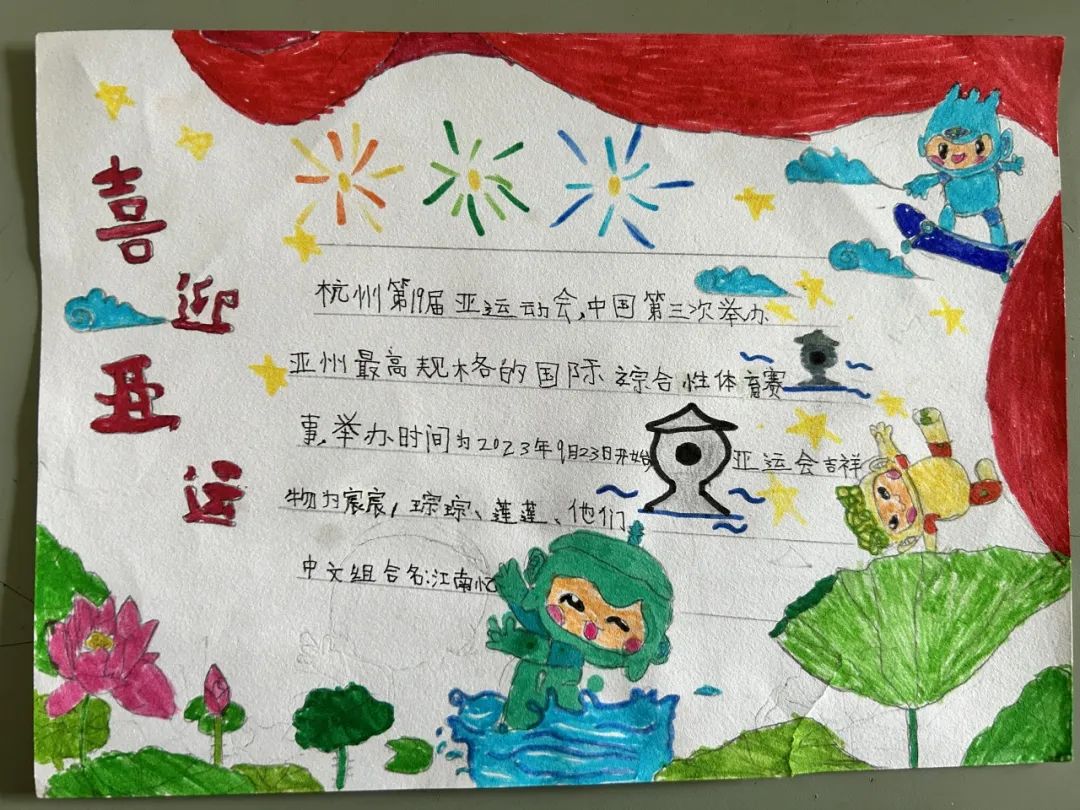 喜迎亚运
杭州第19届亚运动会,中国第三次举办
亚州最高规格的国际综合性体育赛
事,举办时间为2023年9月23日开始 亚运会吉祥
物为宸宸,琮琮、莲莲、他们
中文组合名:江南忆